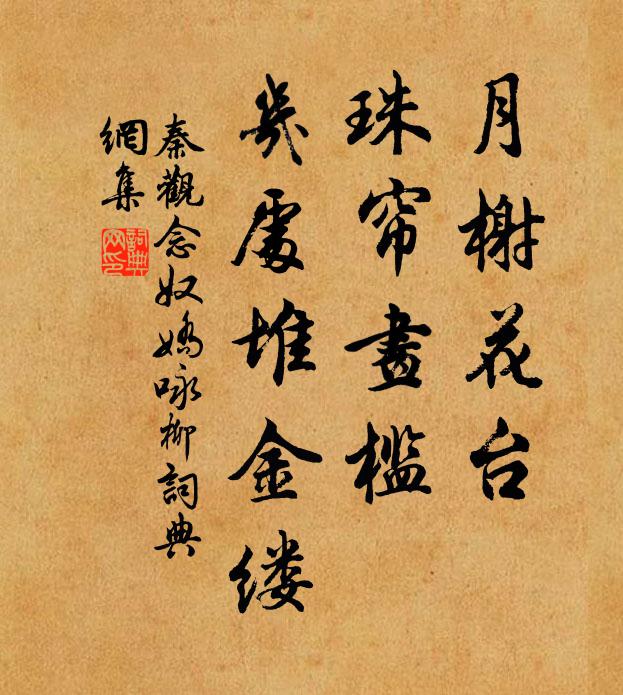 月榭花台
珠帘畫檻
幾處堆金缕
秦觀念奴嬌咏柳詞典
網集
詞典
网印